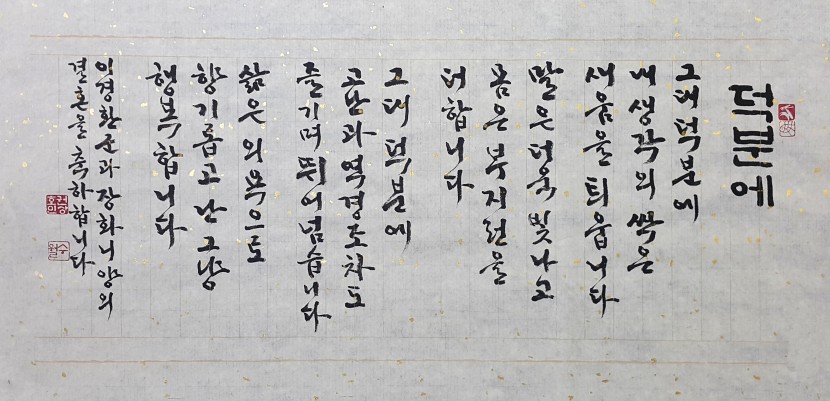 덕분에
그대 덕분에
내 생각의 싹은
새움을 틔웁니다
말은 더욱 빛나고
몸은 부지런을
더합니다
그대 덕분에
고난과 역경조차도
즐기며 뛰어넘습니다
삶은
향기롭고 난 그냥
행복합니다
이경환군과 장화니양의
결혼을 축하합니다